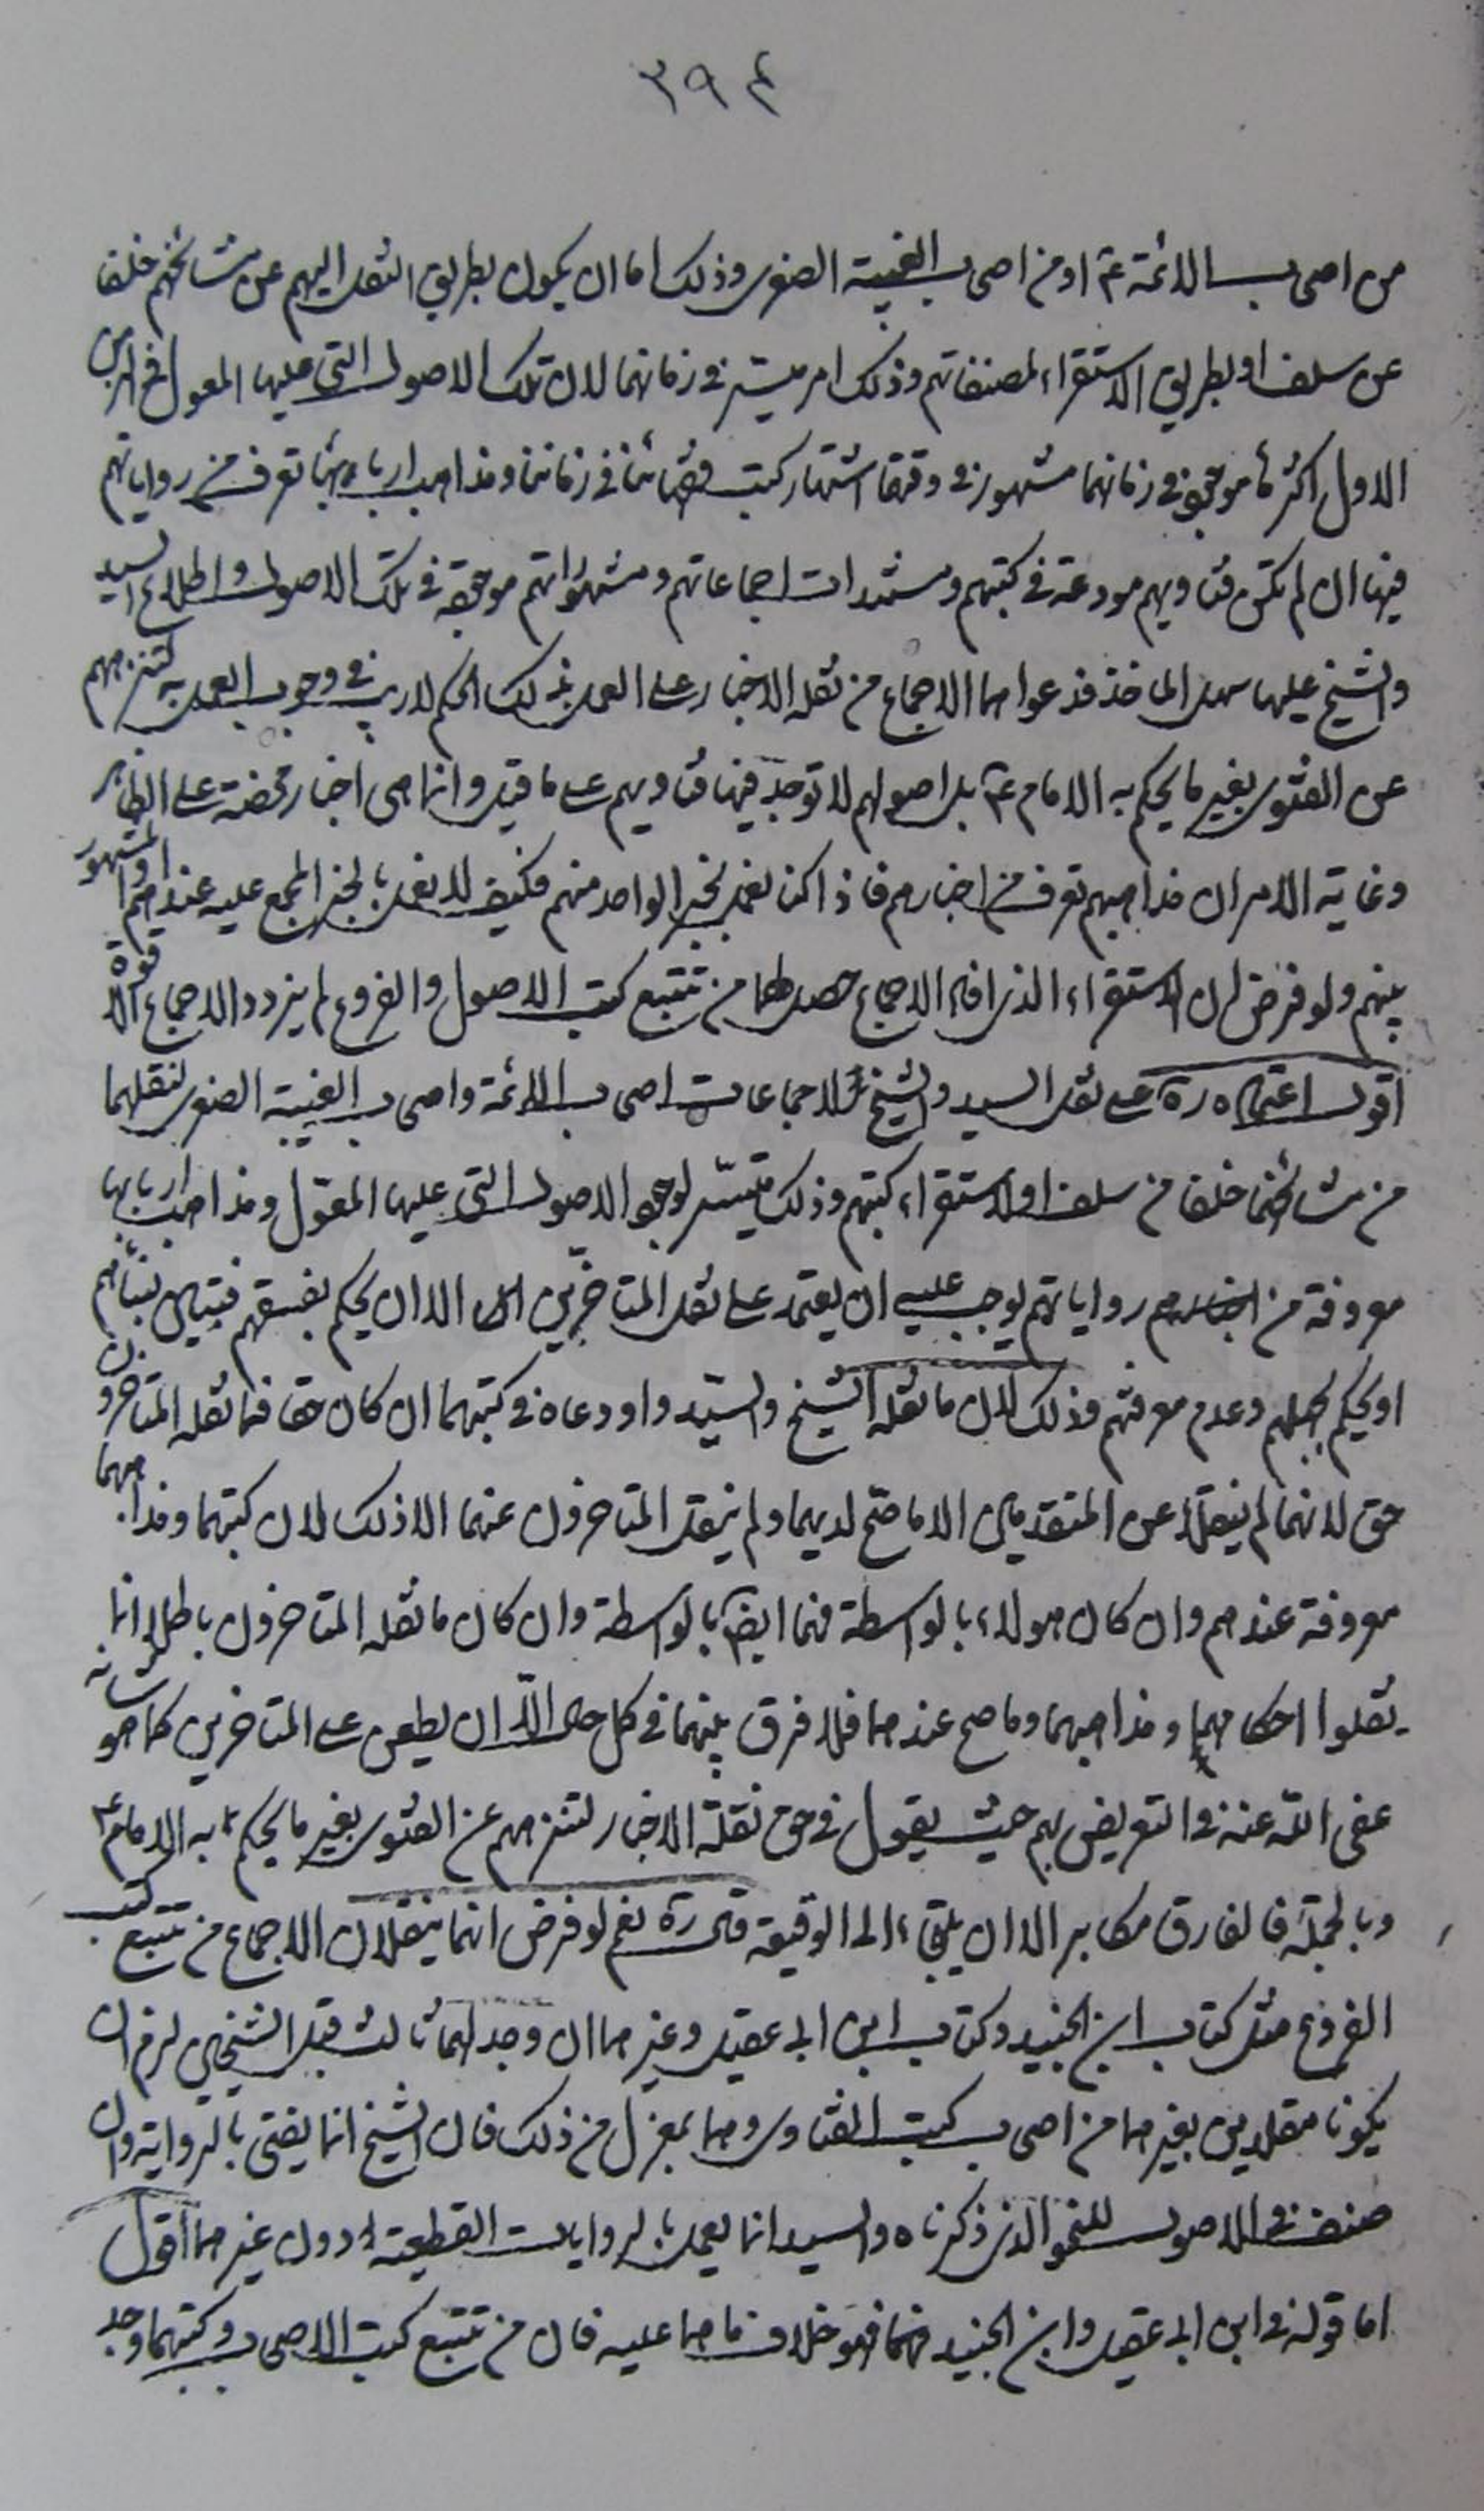 ٣٩٤
من اصحاب الائمة ع او من اصحاب الغيبة الصغرى وذلك اما ان يكون بطريق النقل اليهم عن مشائخهم خلفا
عن سلف او بطريق الاستقراء لمصنفاتهم وذلك امر ميسّر في زمانهما لان تلك الاصول التي عليها المعول في
الاول اكثرها موجودة في زمانهما مشهورة في وقتهما اشتهار كتب فقهائنا في زماننا ومذاهب اربابها تعرف من رواياتهم
فيها ان لم تكن فتاويهم مودعة في كتبهم ومستندات اجماعاتهم ومشهوراتهم موجودة في تلك الاصول واطلاع السيد
والشيخ عليها سهل الماخذ فدعواهما الاجماع من نقلة الاخبار على العمل بذلك الحكم لا ريب في وجوب العمل به لتنزههم
عن الفتوى بغير ما يحكم به الامام ع بل اصولهم لا توجد فيها فتاويهم على ما قيل وانما هي اخبار محضة على الظاهر
وغاية الامر ان مذاهبهم تعرف من اخبارهم فاذا كنا نعمل بخبر الواحد منهم فكيف لا نعمل بالخبر المجمع عليه عندهم او المشهور
بينهم ولو فرض ان الاستقراء الذي افاد الاجماع حصل لهما من تتبع كتب الاصول والفروع لم يزدد الاجماع الا قوة
اقول اعتماده ره على نقل السيد والشيخ الاجماعات اصحاب الائمة واصحاب الغيبة الصغرى لنقلهما
من مشائخهما خلفا من سلف او لاستقراء كتبهم وذلك متيسّر لوجود الاصول التي عليها المعوّل ومذاهب اربابها
معروفة من رواياتهم يوجب عليه ان يعتمد على نقل المتاخّرين الا ان يحكم بفسقهم فتبيّن بنبأهم
او يحكم بجهلهم وعدم معرفتهم وذلك لان ما نقله الشيخ والسيّد واودعاه في كتبهما ان كان حقا فما نقله المتاخرون
حق لانهما لم ينقلا عن المتقدمين الا ما صحّ لديهما ولم ينقل المتاخرون عنهما الا ذلك لان كتبهما ومذاهبهما
معروفة عندهم وان كان هولاء بالواسطة فهما ايضا بالواسطة وان كان ما نقله المتاخرون باطلا انما
نقلوا احكامهما ومذاهبهما وما صح عندهما فلا فرق بينهما في كل حال اللّهم الا ان يطعن على المتاخرين كما هو شانه
عفى اللّه عنه في التعريض بهم حيث يقول في حق نقلة الاخبار لتنزههم عن الفتوى بغير ما يحكم به الامام ع
وبالجملة فالفارق مكابر الا ان يلتجاء الى الوقيعة قال ره نعم لو فرض انهما ينقلان الاجماع من تتبع كتب
الفروع مثل كتاب ابن الجنيد وكتاب ابن ابي عقيل وغيرهما ان وجد لهما ثالث قبل الشيخين لزم ان
يكونا مقلدين بغيرهما من اصحاب كتب الفتاوى وهما بمعزل من ذلك فان الشيخ انما يفتى بالرواية وان
صنف في الاصول للنحو الذي ذكرناه والسيد انما يعمل بالروايات القطعية دون غيرهما اقول
اما قوله في ابن ابي عقيل وابن الجنيد فهما فهو خلاف ما هما عليه فان من تتبع كتب الاصحاب وكتبهما وجد